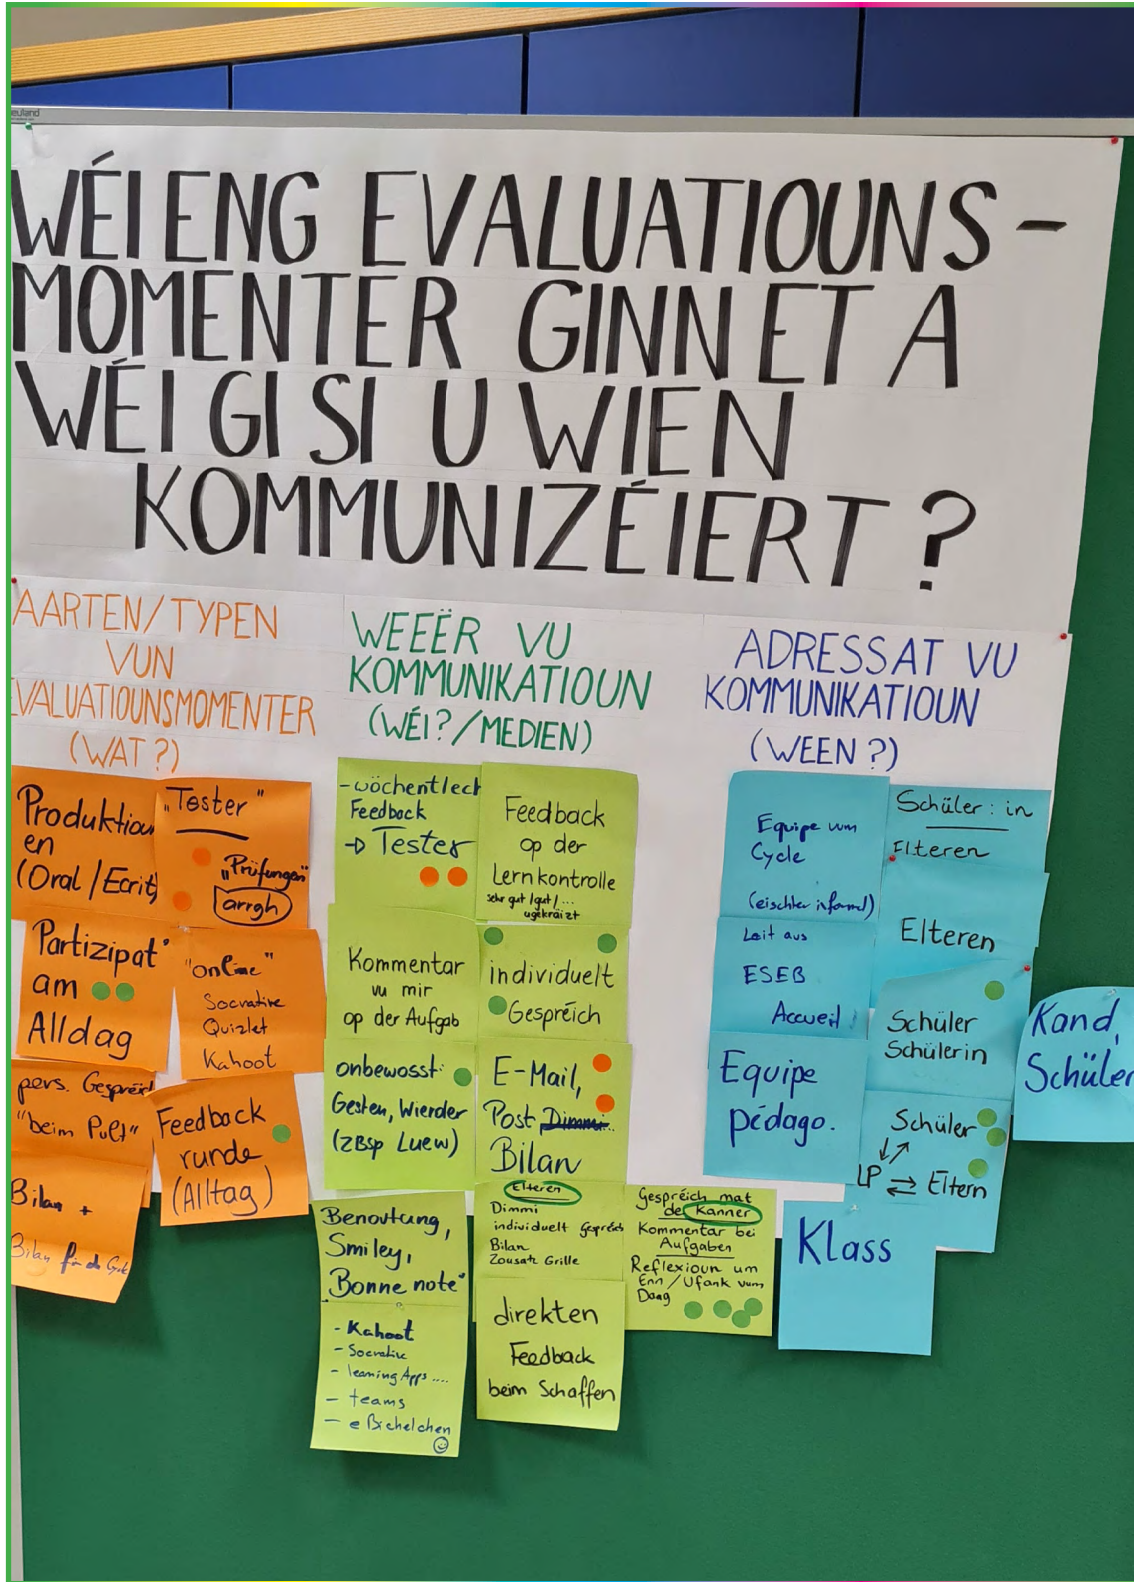 WÉI ENG EVALUATIOUNS-
MOMENTER GINN ET A
WÉI GI SI U WIEN
KOMMUNIZÉIERT ?
AARTEN/TYPEN
VUN
EVALUATIOUNSMOMENTER
(WAT?)
Produktioun
en
(Oral / Ecrit)
"Tester"
"Prüfungen"
arrgh
Partizipat°
am
Alldag
"online"
Socrative
Quizlet
Kahoot
pers. Gespréich
"beim Pult"
Feedback
runde
(Alltag)
Bilan +
Bilan fir de
WEEËR VU
KOMMUNIKATIOUN
(WÉI?/MEDIEN)
-wöchentlech
Feedback
→ Tester
Feedback
op der
Lernkontrolle
sehr gut / gut / ...
ugekräizt
Kommentar
vu mir
op der Aufgab
individuelt
Gespréich
onbewosst:
Gesten, Wierder
(zBsp Luew)
E-Mail,
Post Dimmi...
Bilan
Benotung,
Smiley,
"Bonne note"
Elteren
Dimmi
individuelt Gespréch
Bilan
Zousatz Grille
Gespréich mat
de Kanner
Kommentar bei
Aufgaben
Reflexioun um
Enn / Ufank vum
Daag
- Kahoot
- Socrative
- learning Apps ....
- teams
- e Bichelchen
direkten
Feedback
beim Schaffen
ADRESSAT VU
KOMMUNIKATIOUN
(WEEN ?)
Equipe vum
Cycle
(eischter informel)
Schüler : in
Elteren
Elteren
Leit aus
ESEB
Accueil
Schüler
Schülerin
Kand,
Schüler
Equipe
pédago.
Schüler
LP ⇄ Eltern
Klass